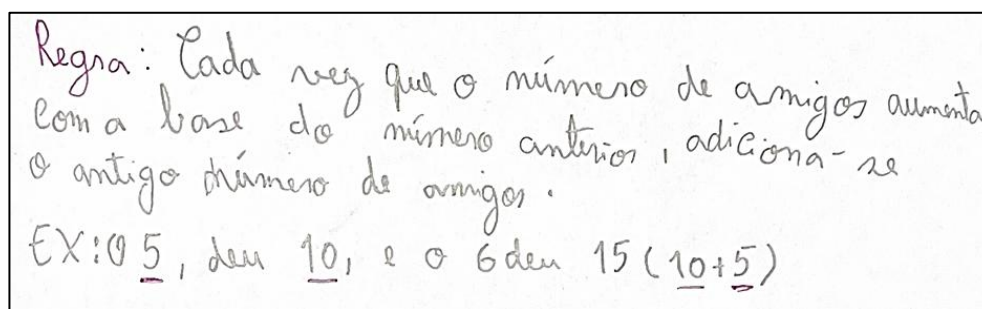 Regra: Cada vez que o número de amigos aumenta
com a base do número anterior, adiciona-se
o antigo número de amigos.
EX: O 5, deu 10, e o 6 deu 15 (10+5)